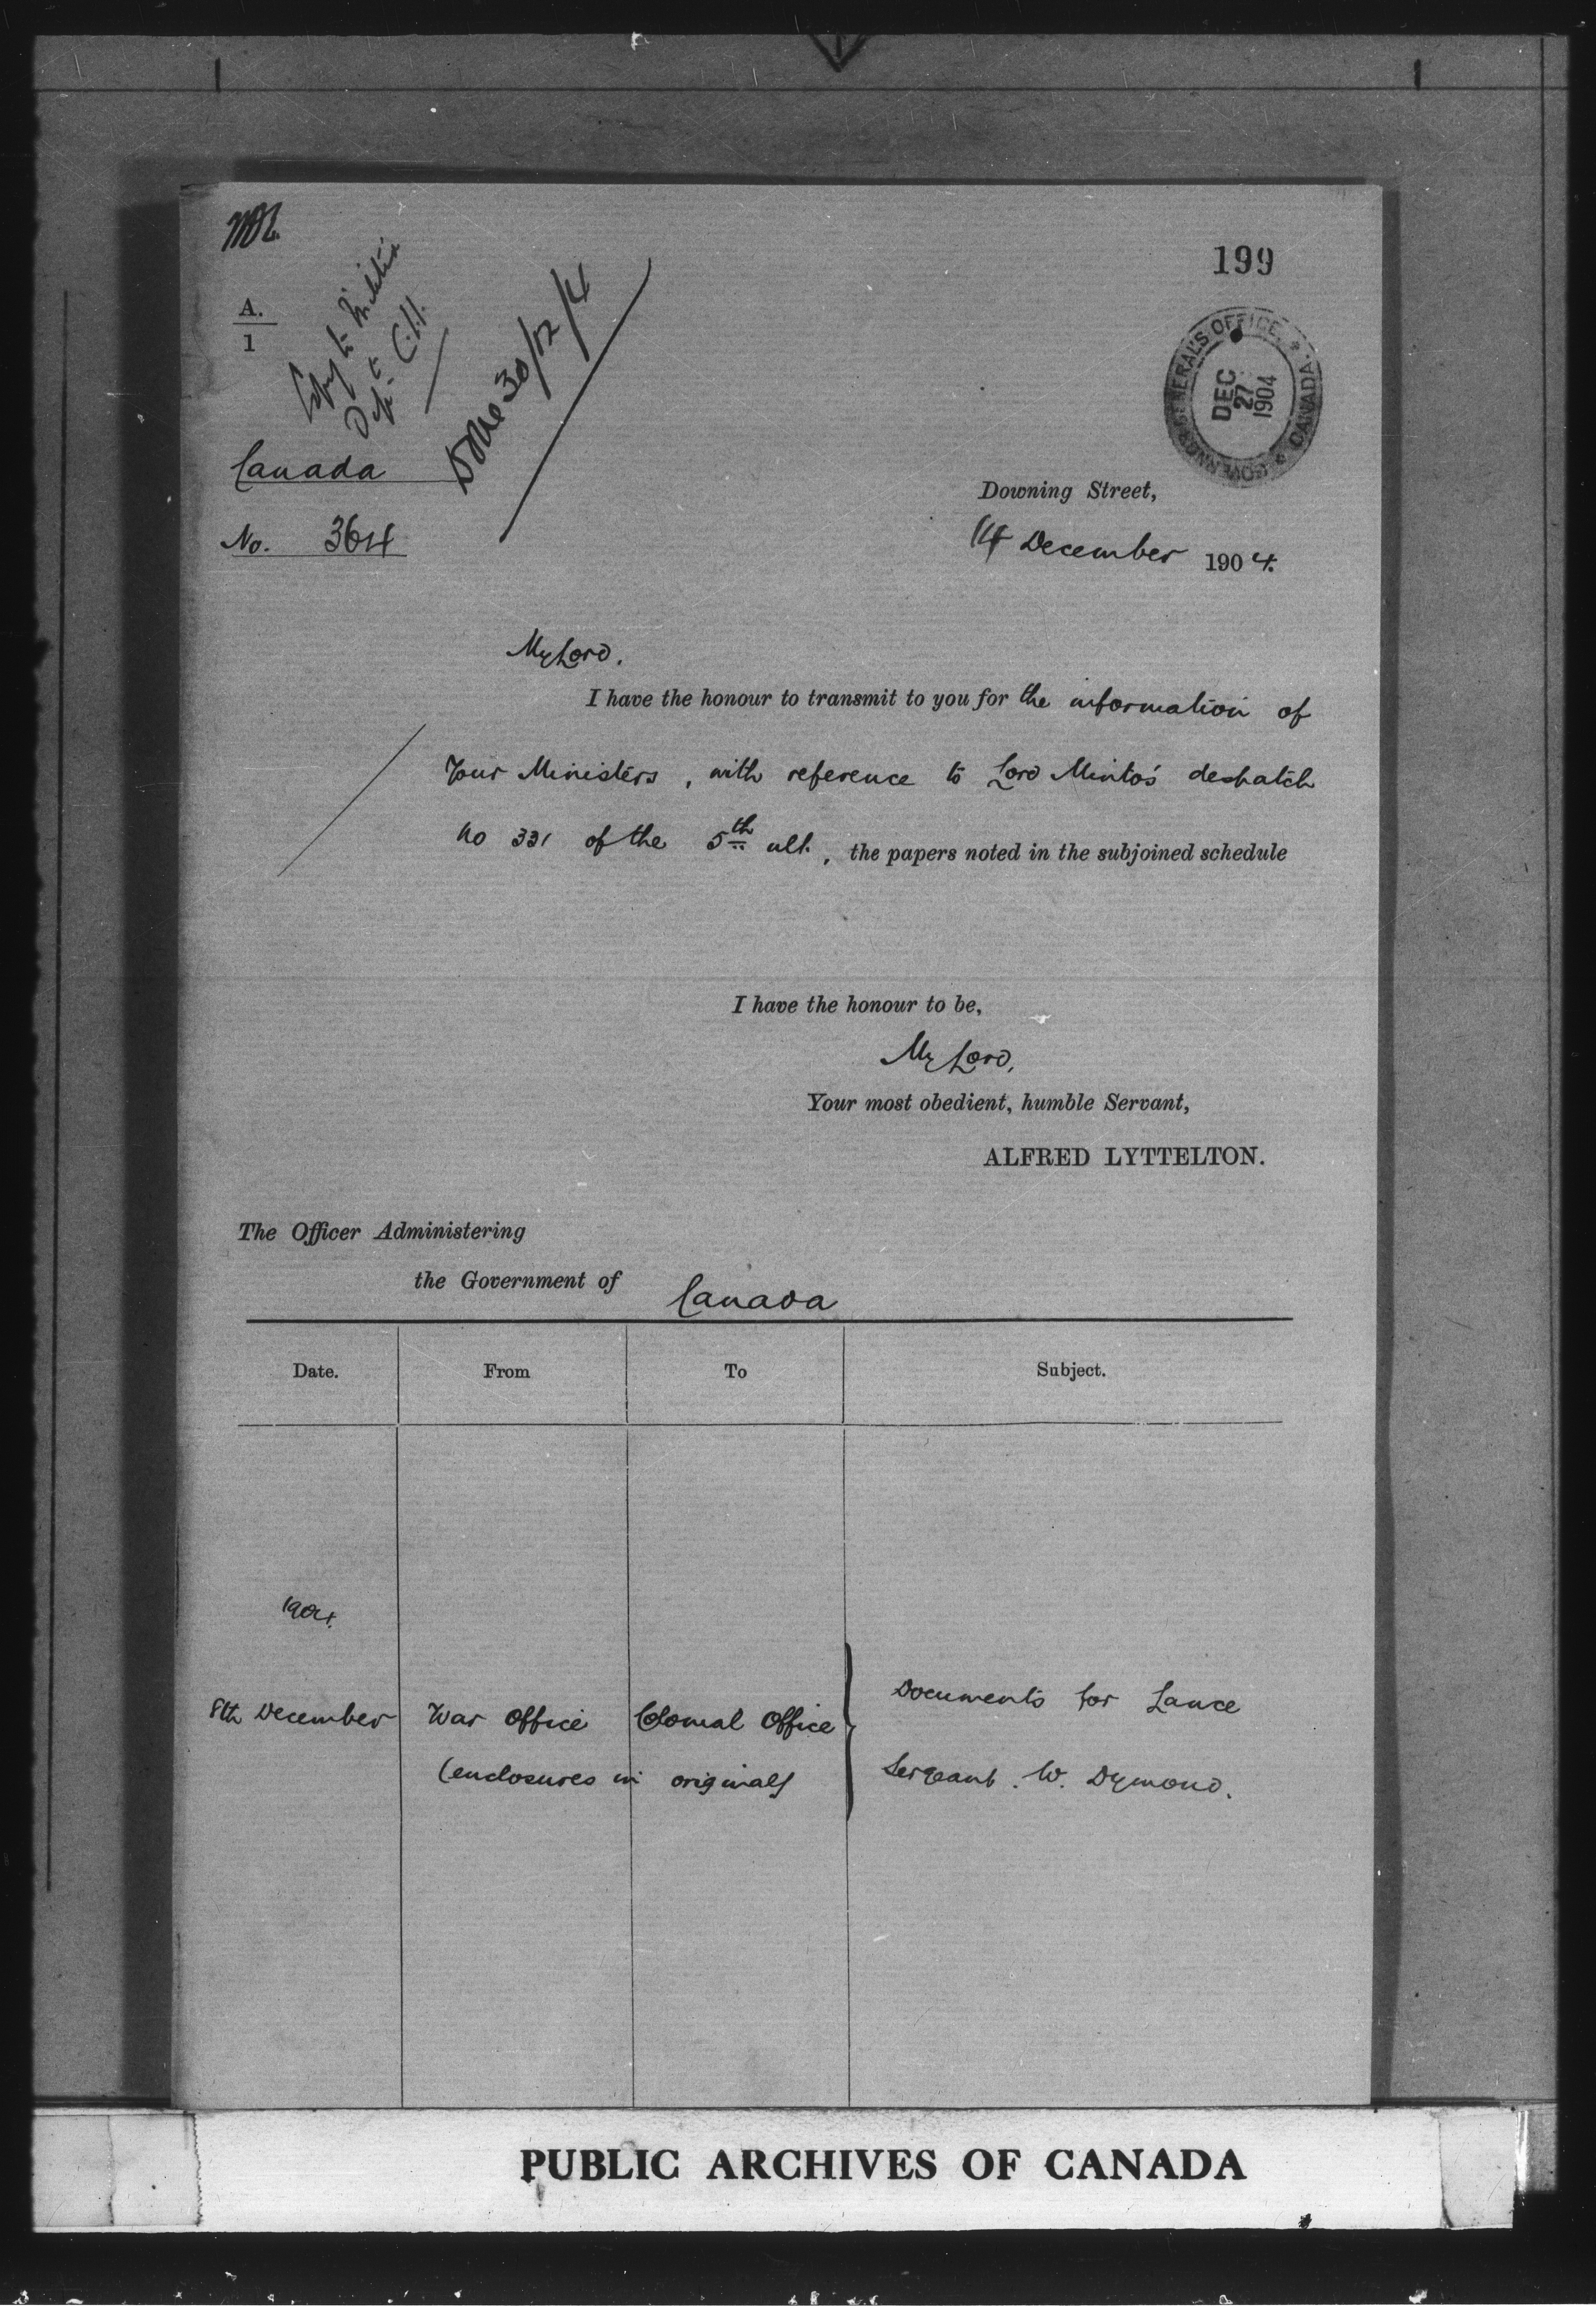 199
A.
1
Copy to Militia
Dept
Done 30/12/4
GOVERNOR GENERAL'S OFFICE * CANADA *
DEC
27
1904
Canada
No. 364
Downing Street,
14 December 1904.
My Lord,
I have the honour to transmit to you for the information of
Your Ministers, with reference to Lord Minto's despatch
No 331 of the 5th ult., the papers noted in the subjoined schedule
I have the honour to be,
My Lord,
Your most obedient, humble Servant,
ALFRED LYTTELTON.
The Officer Administering
the Government of Canada
Date. From To Subject.
1904.
8th December War Office Colonial Office Documents for Lance
(enclosures in original) Sergeant. W. Dymond.
PUBLIC ARCHIVES OF CANADA